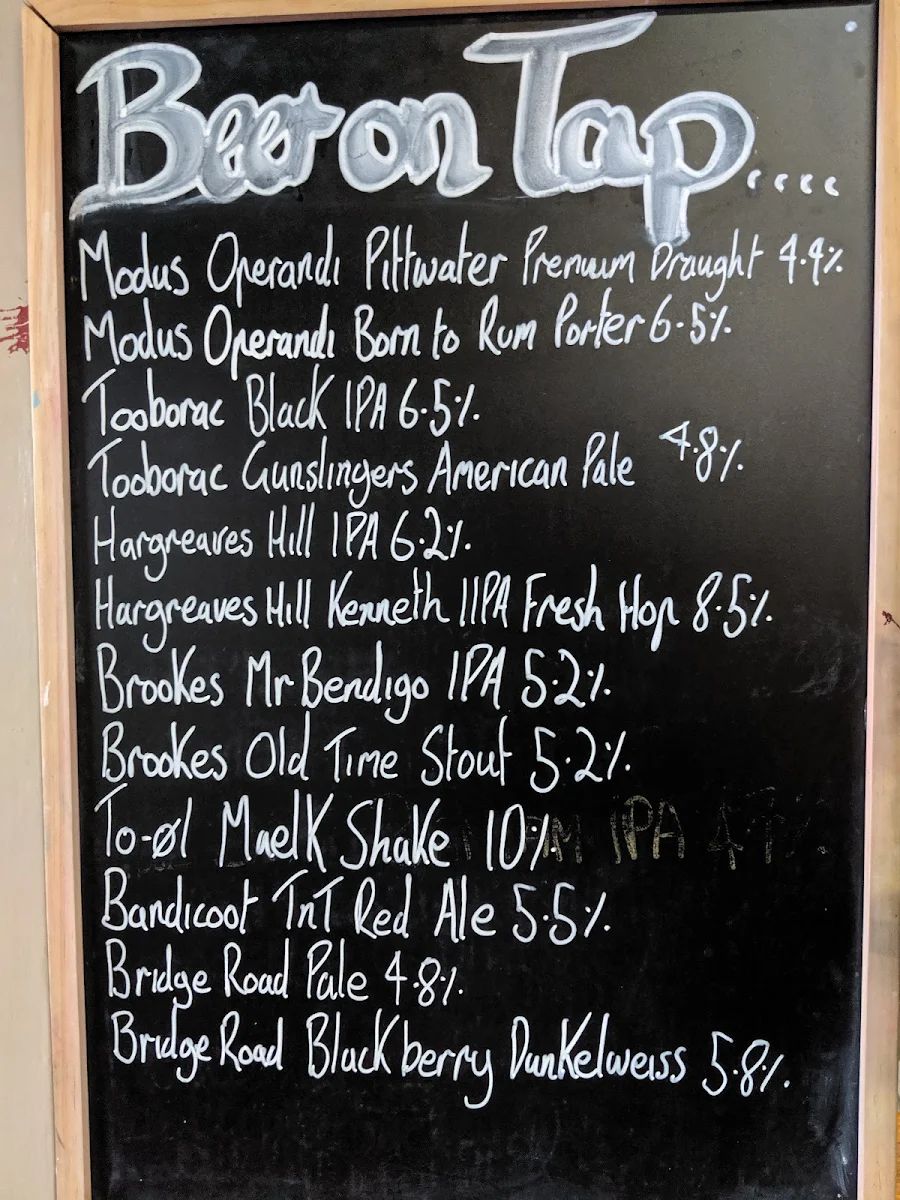 Beer on Tap....
Modus Operandi Pittwater Premium Draught 4.4%
Modus Operandi Born to Rum Porter 6.5%
Tooborac Black IPA 6.5%
Tooborac Gunslingers American Pale 4.8%
Hargreaves Hill IPA 6.2%
Hargreaves Hill Kenneth IIPA Fresh Hop 8.5%
Brookes Mr Bendigo IPA 5.2%
Brookes Old Time Stout 5.2%
To-øl Maelk Shake 10% IPA
Bandicoot TnT Red Ale 5.5%
Bridge Road Pale 4.8%
Bridge Road Blackberry Dunkelweiss 5.8%